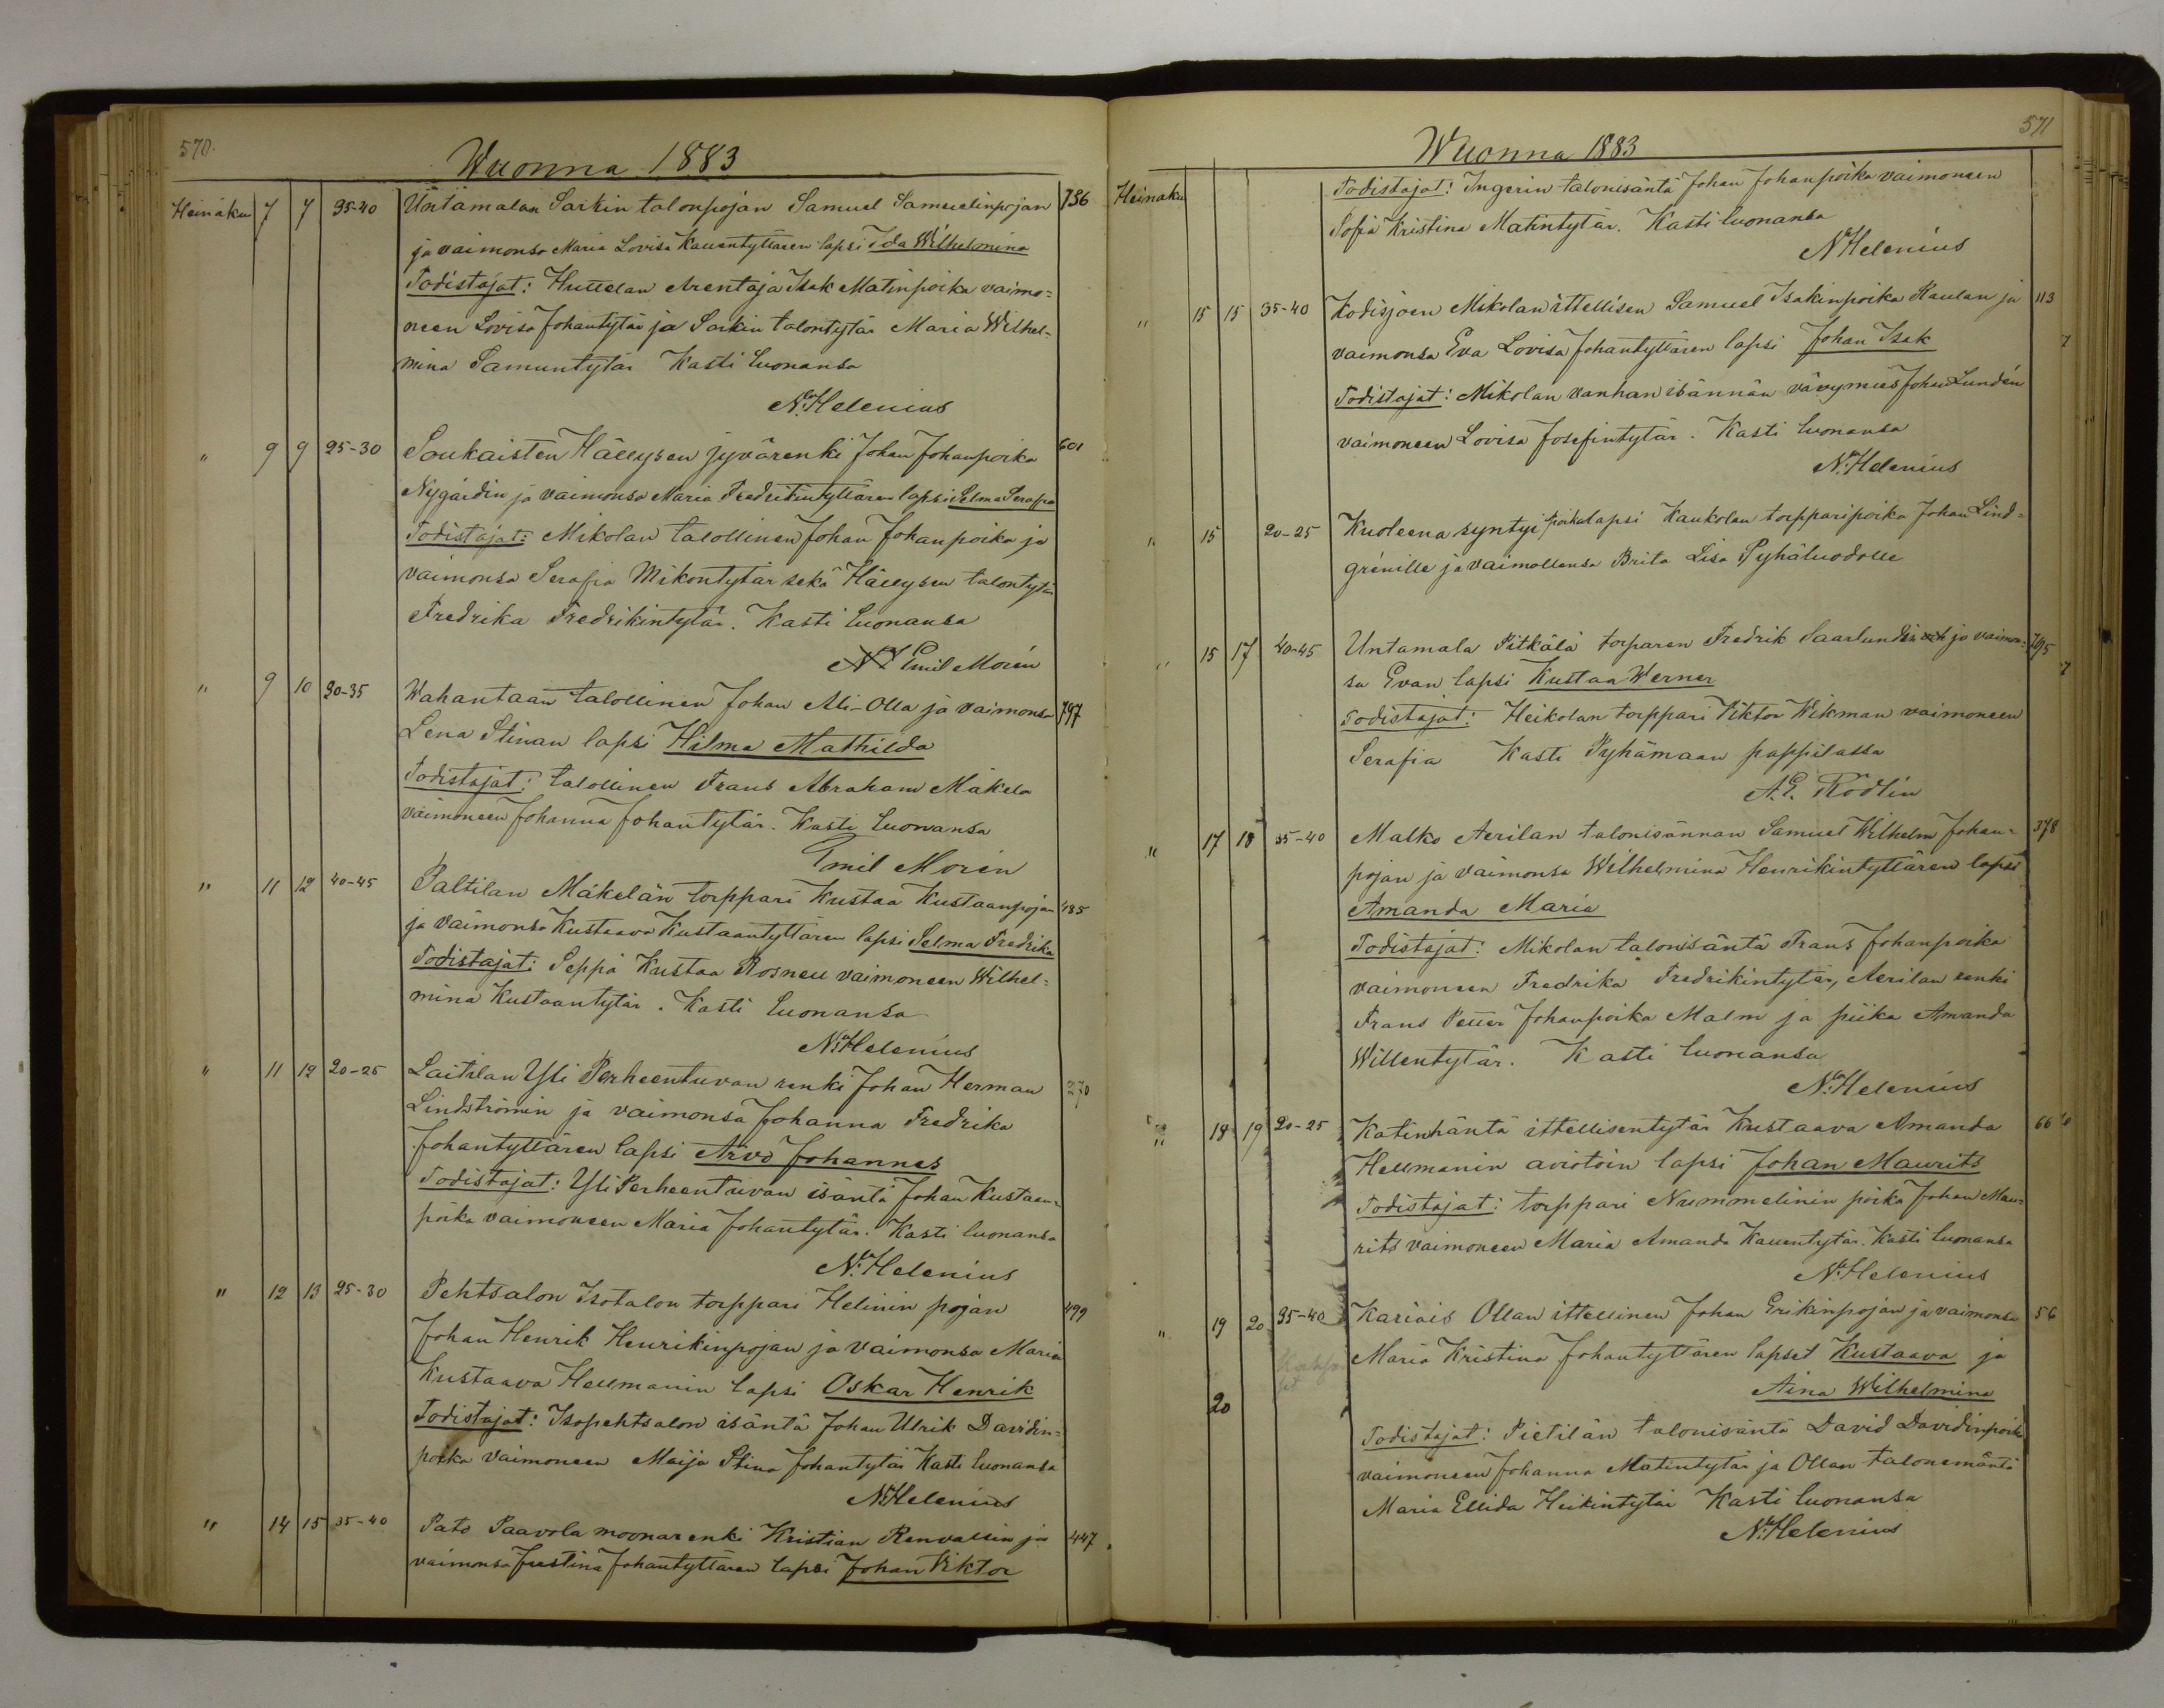 570.
Wuonna 1883
Heinäku 7 7 35-40 Untamalan Sarkin talonpojan Samuel Samuelinpojan 736
ja vaimonsa Maria Lovisa Kallentyttären lapsi Ida Wilhelmina
Todistajat: Huttelan Arentaja Isak Matinpoika vaimo=
neen Lovisa Johantytär ja Sarkin talontytär Maria Wilhel=
mina Samuntytär Kasti luonansa
N. Helenius
" 9 9 25-30 Soukaisten Hällysen jyvärenki Johan Johanpoika 601
Nygårdin ja vaimonsa Maria Fredrikintyttären lapsi Selma Serafia
Todistajat: Mikolan talollinen Johan Johanpoika ja
vaimonsa Serafia Mikontytär sekä Hällysen talontytär
Fredrika Fredrikintytär. Kasti luonansa
Emil Morén
" 9 10 30-35 Wahantaan talollinen Johan Ali-Olla ja vaimonsa 797
Lena Stinan lapsi Hilma Mathilda
Todistajat: talollinen Frans Abraham Mäkelä
vaimoneen Johanna Johantytär. Kasti luonansa
Emil Morén
" 11 12 40-45 Paltilan Mäkelän torppari Kustaa Kustaanpojan 485
ja vaimonsa Kustaava Kustaantyttären lapsi Selma Fredrika
Todistajat: Seppä Kustaa Rosnell vaimoneen Wilhel=
mina Kustaantytär. Kasti luonansa
N. Helenius
" 11 12 20-25 Laitilan Yli Perheentuvan renki Johan Herman 270
Lindströmin ja vaimonsa Johanna Fredrika
Johantyttären lapsi Arvo Johannes
Todistajat: Yli Perheentuvan isäntä Johan Kustaan=
poika vaimoneen Maria Johantytär. Kasti luonansa
N. Helenius
" 12 13 25-30 Pehtsalon Isotalon torppari Helinin pojan 499
Johan Henrik Henrikinpojan ja vaimonsa Maria
Kustaava Hellmanin lapsi Oskar Henrik
Todistajat: Isopehtsalon isäntä Johan Ulrik Davidin=
poika vaimoneen Maija Stina Johantytär Kasti luonansa
N. Helenius
" 14 15 35-40 Pato Paavola moonarenki Kristian Renvallin ja 447
vaimonsa Justina Johantyttären lapsi Johan Viktor
571
Wuonna 1883
Heinäku Todistajat: Ingerin talonisäntä Johan Johanpoika vaimoneen
Sofia Kristina Matintytär. Kasti luonansa
N. Helenius
" 15 15 35-40 Kodisjoen Mikolan ittellisen Samuel Isakinpoika Raulan ja 113
vaimonsa Eva Lovisa Johantyttären lapsi Johan Isak
Todistajat: Mikolan vanhan isännän vävymies Johan Lundén
vaimoneen Lovisa Josefintytär. Kasti luonansa
N. Helenius
" 15 20-25 Kuoleena syntyi poikalapsi Kaukolan torpparipoika Johan Lind=
grénille ja vaimollensa Brita Lisa Pyhäluodolle
" 15 17 40-45 Untamala Pitkälä torparen Fredrik Saarlundin ja vaimon= 795
sa Evan lapsi Kustaa Werner
Todistajat: Heikolan torppari Viktor Wikman vaimoneen
Serafia Kasti Pyhämaan pappilassa
A. E. Rödlin
" 17 18 35-40 Malko Aerilan talonisännan Samuel Wilhelm Johan= 378
pojan ja vaimonsa Wilhelmina Henrikintyttären lapsi
Amanda Maria
Todistajat: Mikolan talonisäntä Frans Johanpoika
vaimoneen Fredrika Fredrikintytär, Aerilan renki
Frans Petter Johanpoika Malm ja piika Amanda
Willentytär. Kasti luonansa
N. Helenius
" 18 19 20-25 Katinhäntä ittellisentytär Kustaava Amanda 66
Hellmanin aviotoin lapsi Johan Maurits
Todistajat: torppari Nummelinin poika Johan Mau=
rits vaimoneen Maria Amanda Kallentytär. Kasti luonansa
N. Helenius
" 19 20 35-40 Kariais Ollan ittellinen Johan Erikinpojan ja vaimonsa 56
Maria Kristina Johantyttären lapset Kustaava ja
20 Aina Wilhelmina
Todistajat: Pietilän talonisäntä David Davidinpoika
vaimoneen Johanna Matintytär ja Ollan talonemäntä
Maria Ellida Heikintytär Kasti luonansa
N. Helenius